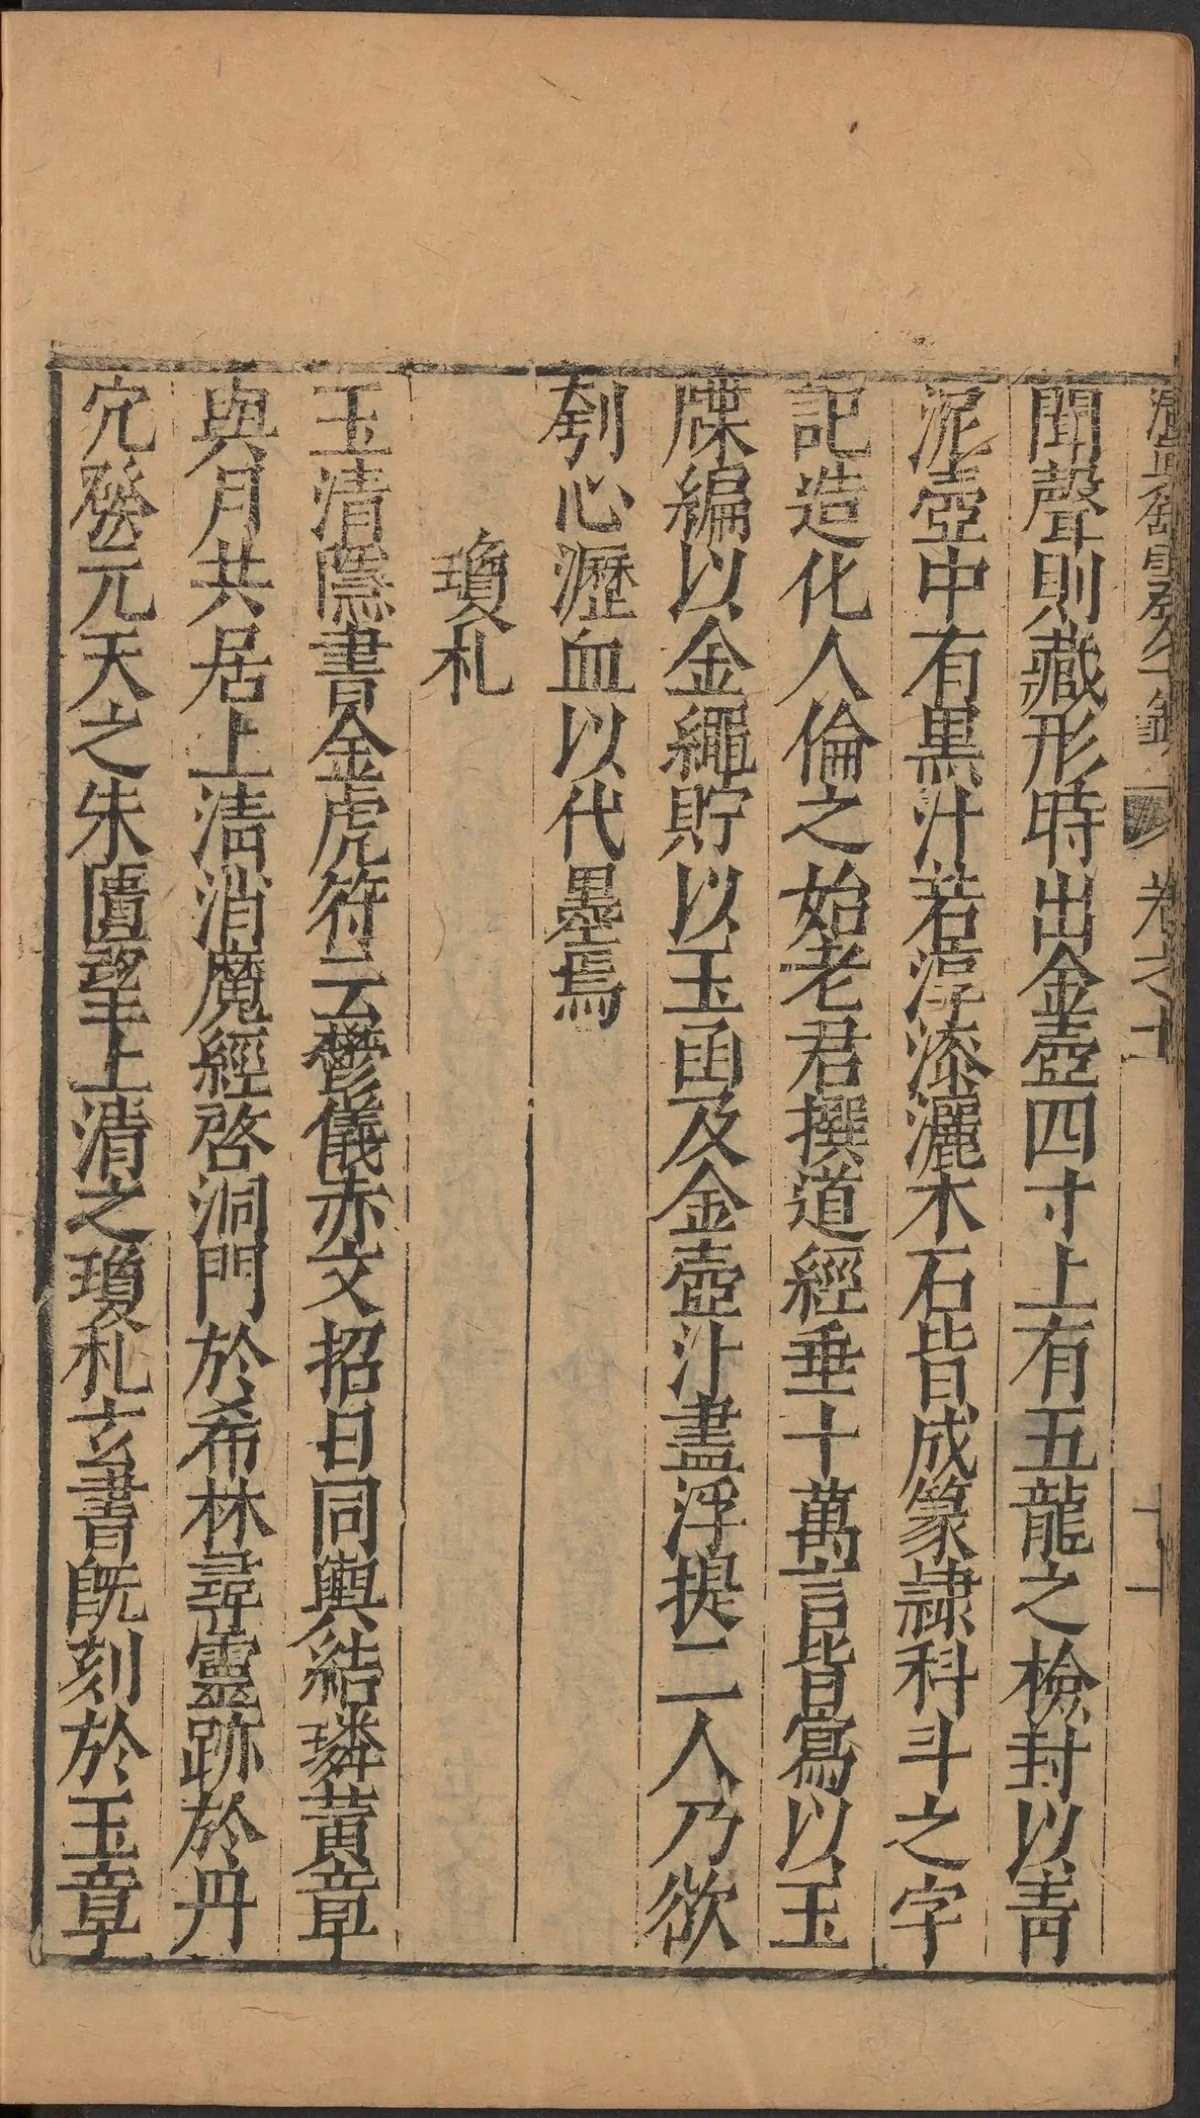 卷之十
十一
聞聲則藏形時出金壺四寸上有五龍之檢封以青
泥壺中有黒汁若淳漆灑木石皆成篆隷科斗之字
記造化人倫之始老君撰道經垂十萬言皆寫以玉
牒編以金繩貯以玉函及金壺汁盡浮提二人乃欲
刳心瀝血以代墨焉
瓊札
玉清隱書金虎符云鬱儀赤文招日同輿結璘黃章
與月共居上清消魔經啓洞門於希林尋靈跡於丹
穴發元天之朱匱望上清之瓊札玄書旣刻於玉章